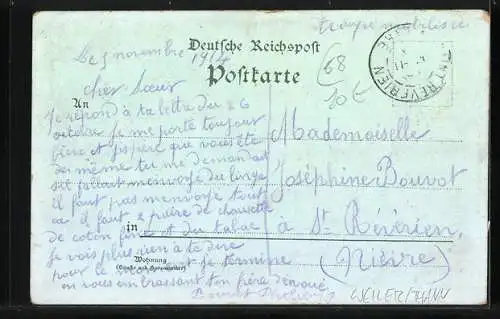 troupe mobilisée
Deutsche Reichspost
Postkarte
Le 5 novembre 1914
68
10 E
ST REVERIEN
cher Sœur
An
Je répond à ta lettre du 26
octobre je me porte toujour
bien et j'espère que vous ête
de même tu me demandait
s'il fallait m'envoyé du linge
il faut pas m'envoyé tout
ça il faut 2 paire de chausette
de coton et du tabac
je vois plus rien à te dire
pour le je termine
en vous embrassant ton frère dévoué
Bouvot
Mademoiselle
Joséphine Bouvot
in
à St Révérien
(Nièvre)
Wohnung
(Straße und Hausnummer)
WEILER/THANN